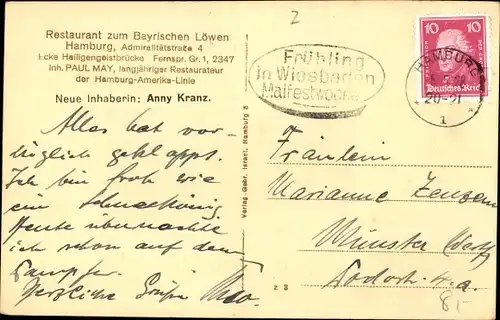 Restaurant zum Bayrischen Löwen
Hamburg, Admiralitätstrase 4
Ecke Heiligengeistbrücke Fernspr. Gr. 1, 2347
Inh. PAUL MAY, langjähriger Restaurateur
der Hamburg-Amerika-Linie
Neue Inhaberin: Anny Kranz.
Alles hat vor-
züglich geklappt.
Ich bin froh wie
ein Schneekönig.
Heute übernachte
ich schon auf dem
Dampfer.
Herzliche Grüße
Verlag Gebr. Israel, Hamburg 8
z 3
Z
Frühling
in Wiesbaden
Maifestwoche
10 10
Deutsches Reich
HAMBURG
20-21
1
Fräulein
Marianne
Münster
8,-